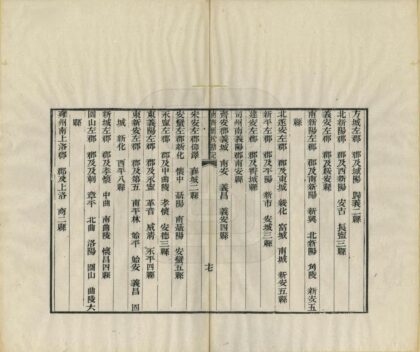 方城左郡 郡及城陽 歸義二縣
北新陽郡 郡及西新陽 安吉 長寧三縣
義安左郡 郡及縣安縣
南新陽左郡 郡及南新陽 新興 北新陽 角陵 新安五
縣
北遂安左郡 郡及東城 綏化 富城 南城 新安五縣
新平左郡 郡及平陽 新市 安城三縣
建安左郡 郡及霄城縣
司州南義陽郡南安縣
齊安郡義城 南安 義昌 義安四縣
十七
宋安左郡仰澤 襄城二縣
安蠻左郡新化 懷中 聶陽 南聶陽 安蠻五縣
永寧左郡 郡及中曲陵 孝懷 安德三縣
東義陽左郡 郡及永寧 革音 威清 永平四縣
東新安左郡 郡及第五 南平林 始平 始安 義昌 四
城 新化 西平八縣
新城左郡 郡及孝懷 中曲 南曲陵 懷昌四縣
圍山左郡 郡及及刺 章平 北曲 洛陽 圍山 曲陵六
縣
雍州南上洛郡 郡及上洛 商二縣